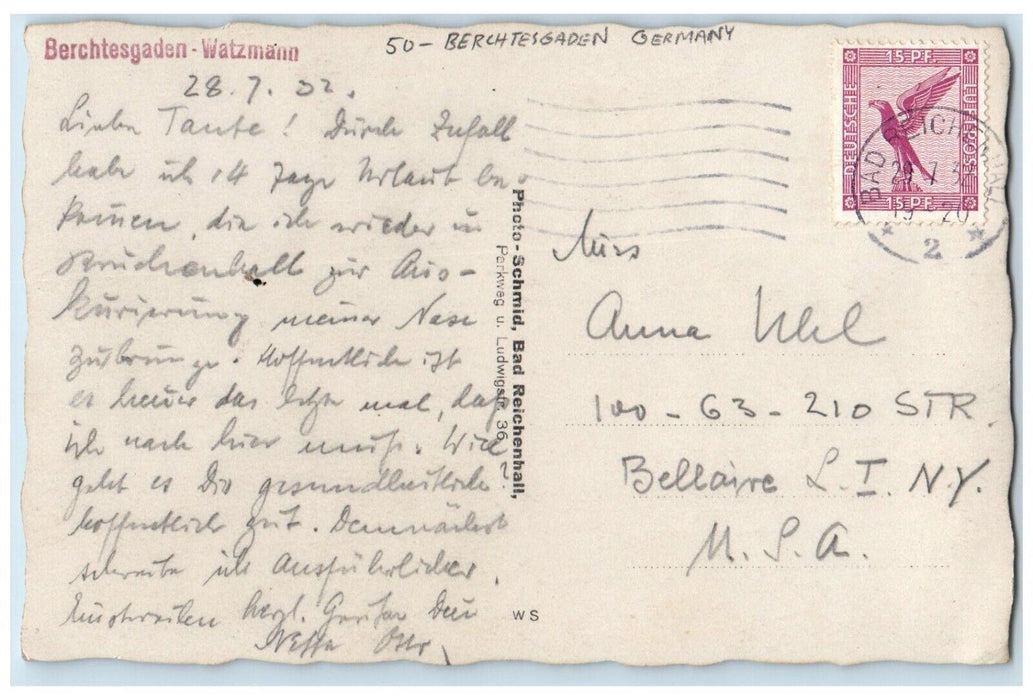 Berchtesgaden - Watzmann
50 - BERCHTESGADEN GERMANY
28.7.32.
Liebe Tante! Durch Zufall
habe ich 14 Tage Urlaub be-
kommen, die ich wieder in
Reichenhall zur Aus-
kurierung meiner Nase
zubringe. Hoffentlich ist
es heuer das letzte mal, daß
ich nach hier muß. Wie
geht es Dir gesundheitlich?
hoffentlich gut. Demnächst
schreibe ich Ausführlicher.
Einstweilen herzl. Grüße Dein
Neffe
Photo-Schmid, Bad Reichenhall,
Parkweg u. Ludwigstr. 36
WS
15 PF.
DEUTSCHE
LUFTPOST
15 PF.
BAD REICHENHALL
29.7.32
19 - 20
2
Miss
Anna Uhl
100 - 63 - 210 STR.
Bellaire L. I. N.Y.
U. S. A.